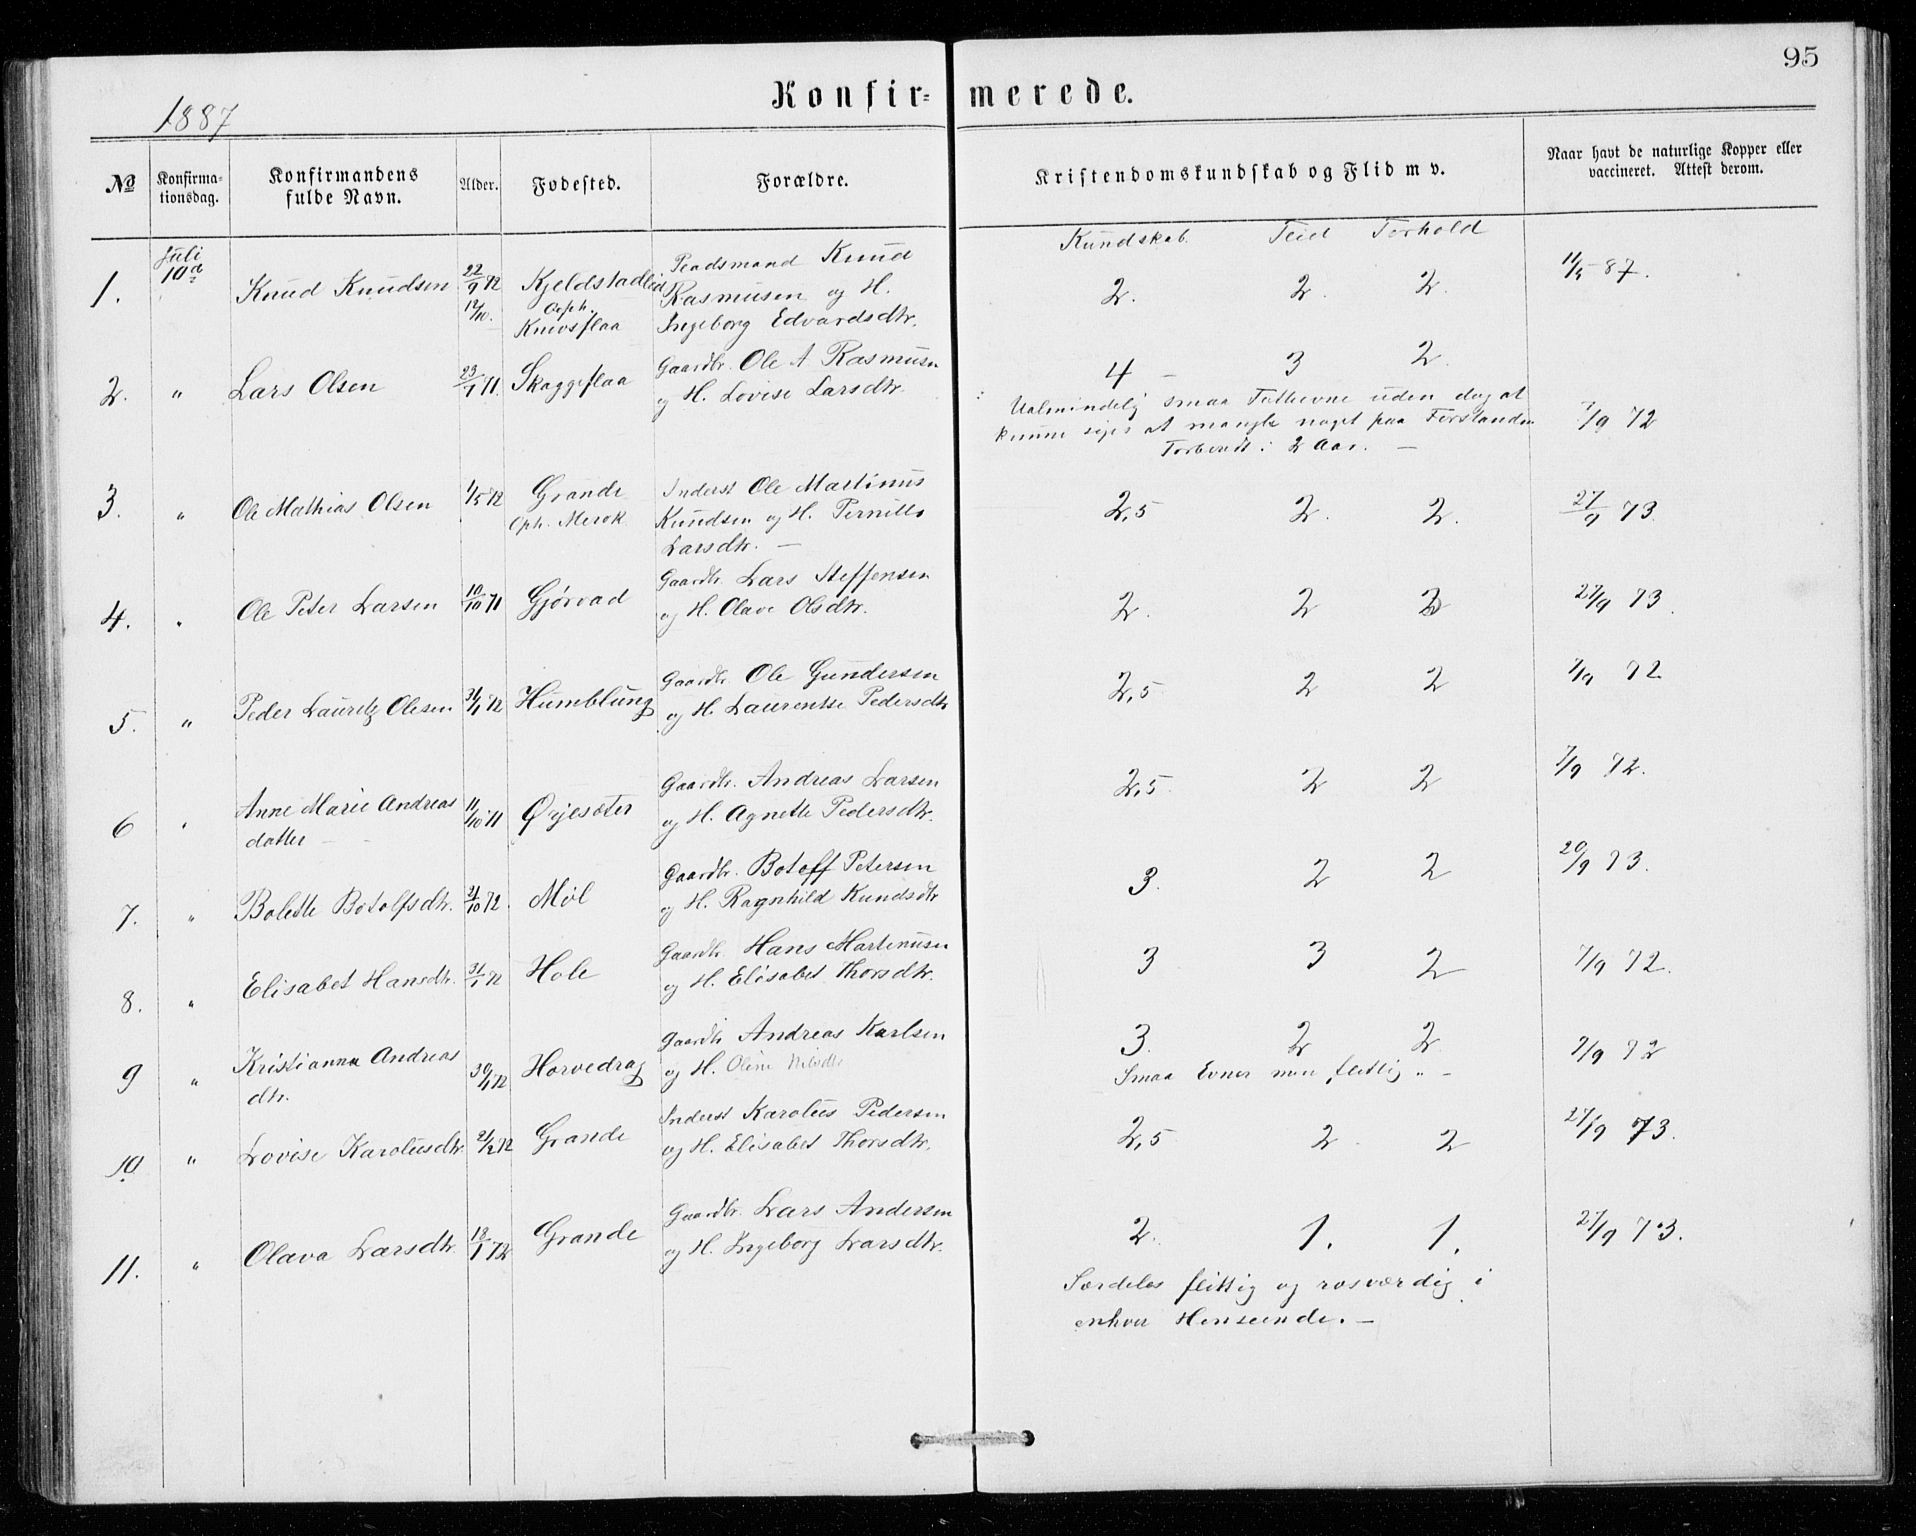 95
Konfir- merede.
1887
No Konfirma-tionsdag. Konfirmandens fulde Navn. Alder. Fødested. Forældre. Kristendomskundskab og Flid m v. Naar havt de naturlige Kopper eller vaccineret. Attest derom.
Kundskab. Flid Forhold
Juli
1. 10de Knud Knudsen 22/9 72 Kjeldstadlid Knud 2. 2. 2. 11/5 87.
12/10. Oph. Rasmusen og H.
Knivsflaa Ingeborg Edvardsdtr.
2. " Lars Olsen 23/9 71. Skaggeflaa Gaardbr. Ole A Rasmusen 4 - 3 2. 7/9 72
og H. Lovise Larsdtr.
Ualmindelig smaa Fatteevne uden dog at
kunne siges at mangle noget paa Forstanden
Forberedt i 2 Aar. -
3. " Ole Mathias Olsen 1/5 72 Grande Inderst Ole Martinus 2,5 2. 2. 27/9 73.
Oph. Merok Knudsen og H. Pernille
Larsdtr. -
4. " Ole Peter Larsen 10/10 71 Gjørvad Gaardbr. Lars Steffensen 2. 2 2 27/9 73.
og H. Olave Olsdtr.
5. " Peder Lauritz Olesen 31/1 72 Humblung Gaardbr. Ole Gundersen 2,5 2 2 7/9 72
og H. Laurentse Pedersdtr
6 " Anne Marie Andreas 11/10 71 Ørjesæter Gaardbr. Andreas Larsen 2,5. 2 2 7/9 72.
datter - og H. Agnette Pedersdtr.
7. " Bolette Botolfsdtr. 21/10 72. Møl Gaardbr. Botoff Petersen 3. 2 2 20/9 73.
og H. Ragnhild Knudsdtr
8. " Elisabet Hansdtr. 31/1 72 Hole Gaardbr. Hans Martinusen 3 3 2 7/9 72.
og H. Elisabet Thorsdtr.
9 " Kristianna Andreas 30/1 72 Horvedrag Gaardbr Andreas Karlsen 3. 2 2 7/9 72
dtr. og H. Oline Nilsdtr
Smaa Evner men flittig " -
10. " Lovise Karolusdtr. 21/2 72 Grande Inderst Karolus Pedersen 2,5 2 2 27/9 73.
og H. Elisabet Thorsdtr.
11. " Olava Larsdtr. 18/1 72 Grande Gaardbr. Lars Andersen 2. 1. 1. 27/9 73.
og H. Ingeborg Larsdtr.
Særdeles flittig og rosværdig i
enhver Henseende. -